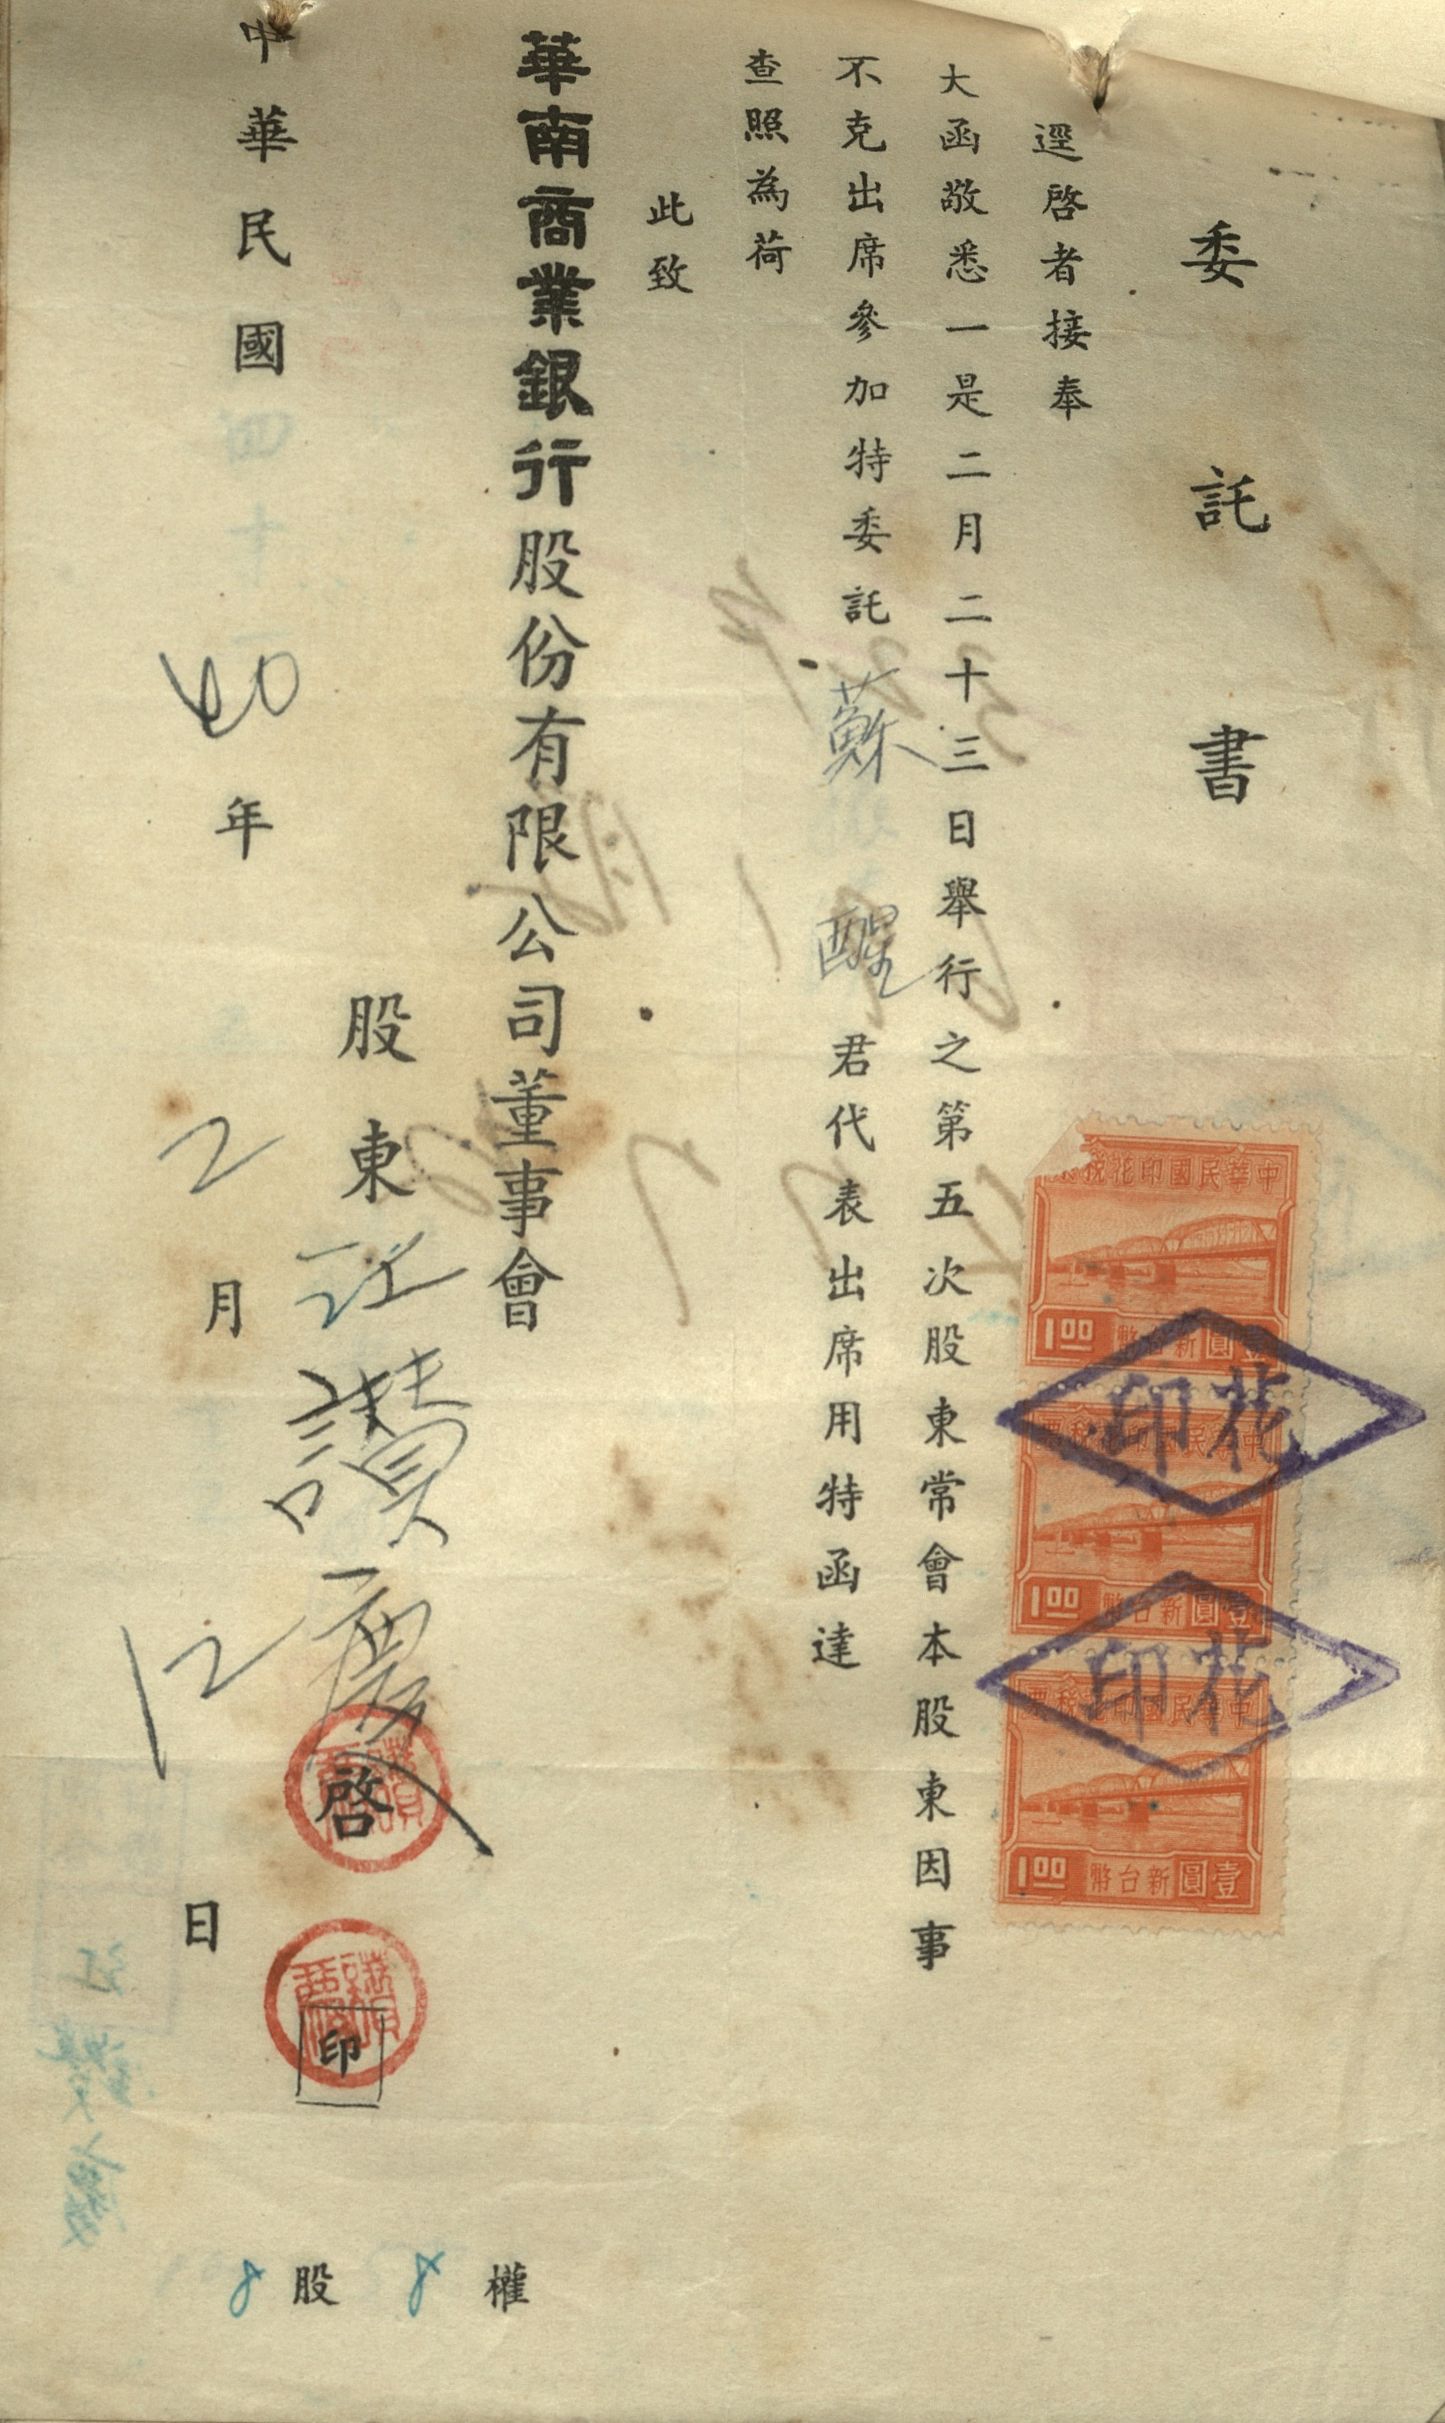 委託書
逕啓者接奉
大函敬悉一是二月二十三日舉行之第五次股東常會本股東因事
不克出席參加特委託蘇醒君代表出席用特函達
查照為荷
此致
華南商業銀行股份有限公司董事會
股東江讚慶啓
印
中華民國40年2月12日
8股8權
中華民國印花稅票
1.00
壹圓新台幣
花印
中華民國印花稅票
1.00
壹圓新台幣
花印
中華民國印花稅票
1.00
壹圓新台幣